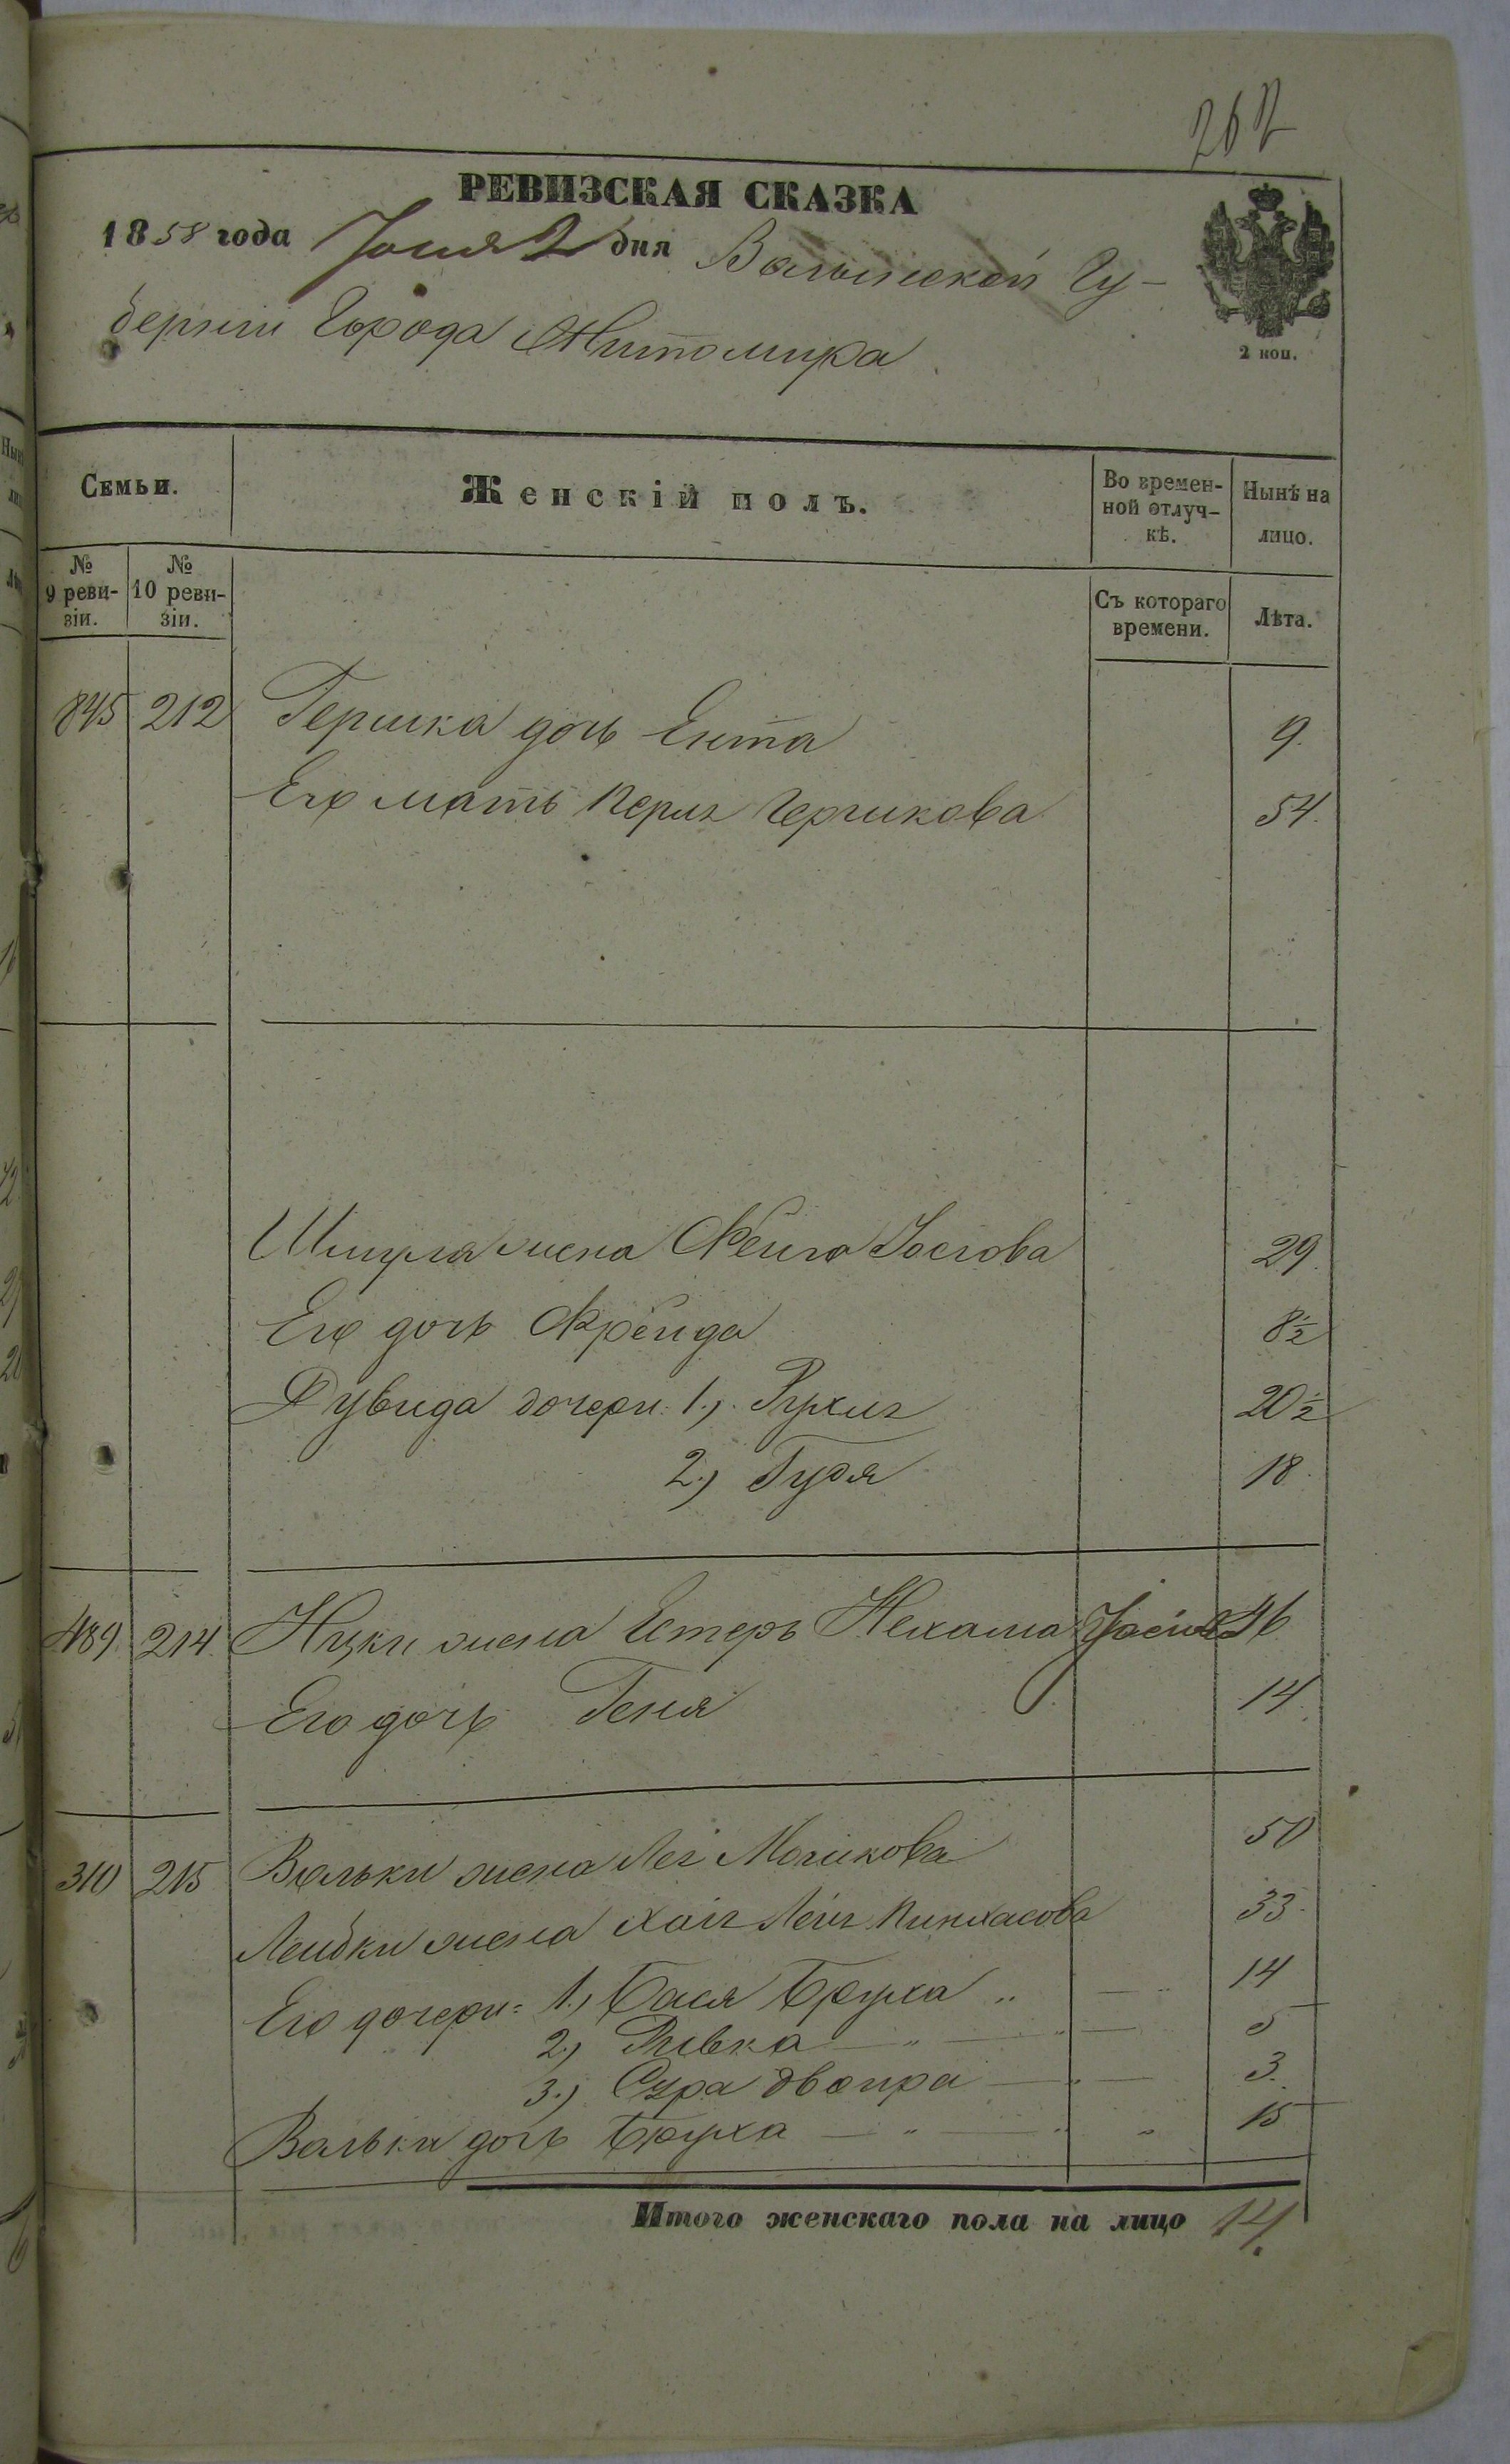 262
РЕВИЗСКАЯ СКАЗКА
1858 года Іюня 2 дня Волынской Гу-
берніи Города Житомира
2 коп.
Семьи. Женскій полъ. Во времен-ной отлуч-кѣ. Нынѣ на лицо.
№ 9 реви-зіи. № 10 реви-зіи. Съ котораго времени. Лѣта.
845 212 Гершка дочь Ента 9.
Его мать Перля Гершкова 54.
Шмуля жена Фейга Іосіова 29.
Его дочь Фрейда 8½
Дувида дочери: 1.) Рухля 20½
2.) Гудя 18.
489. 214. Нуки жена Естеръ Нехама 46
Его дочь Геня 14.
310 215 Вольки жена Лея Мошкова 50
Лейбки жена Хая Лея Пинхасова 33.
Его дочери: 1.) Бася Бруха „ — „ 14
2.) Ривка — „ — „ — 5
3.) Сура Двоира — „ — 3.
Вольки дочь Бруха — „ — „ „ 15
Итого женскаго пола на лицо 14.